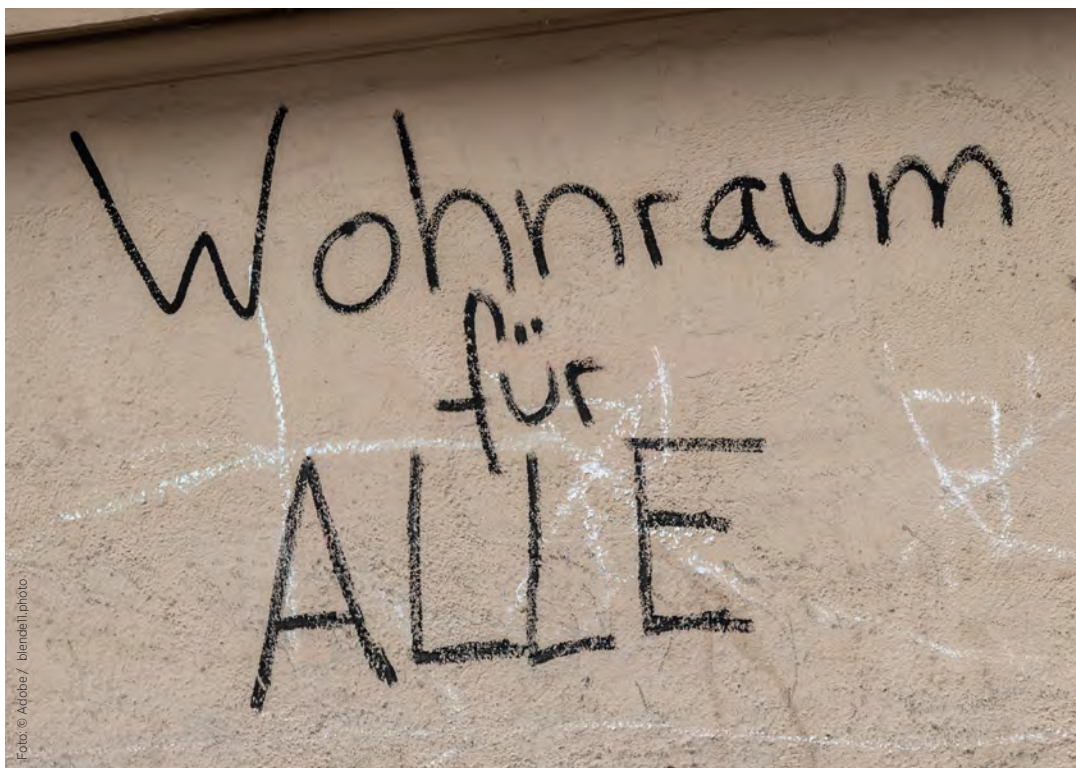 Wohnraum
für
ALLE
Foto: © Adobe / blende11.photo